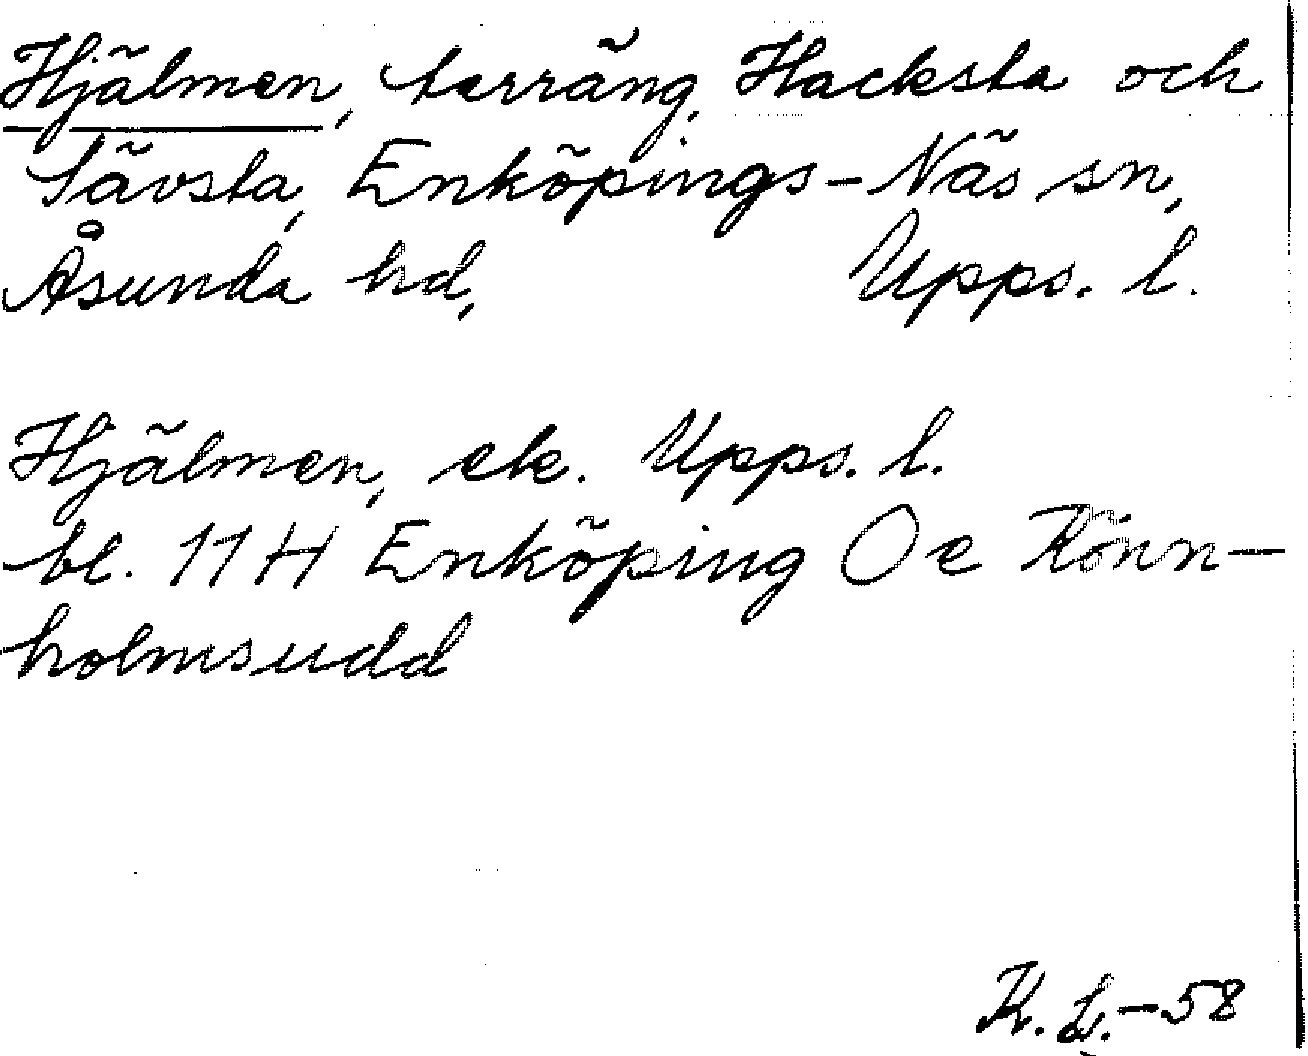 Hjälmen, terräng, Hacksta och
Sävsta, Enköpings-Näs sn,
Åsunda hd, Upps. l.
Hjälmen, ek. Upps. l.
bl. 11 H Enköping Oe Rönn-
holmsudd
K. L. -58